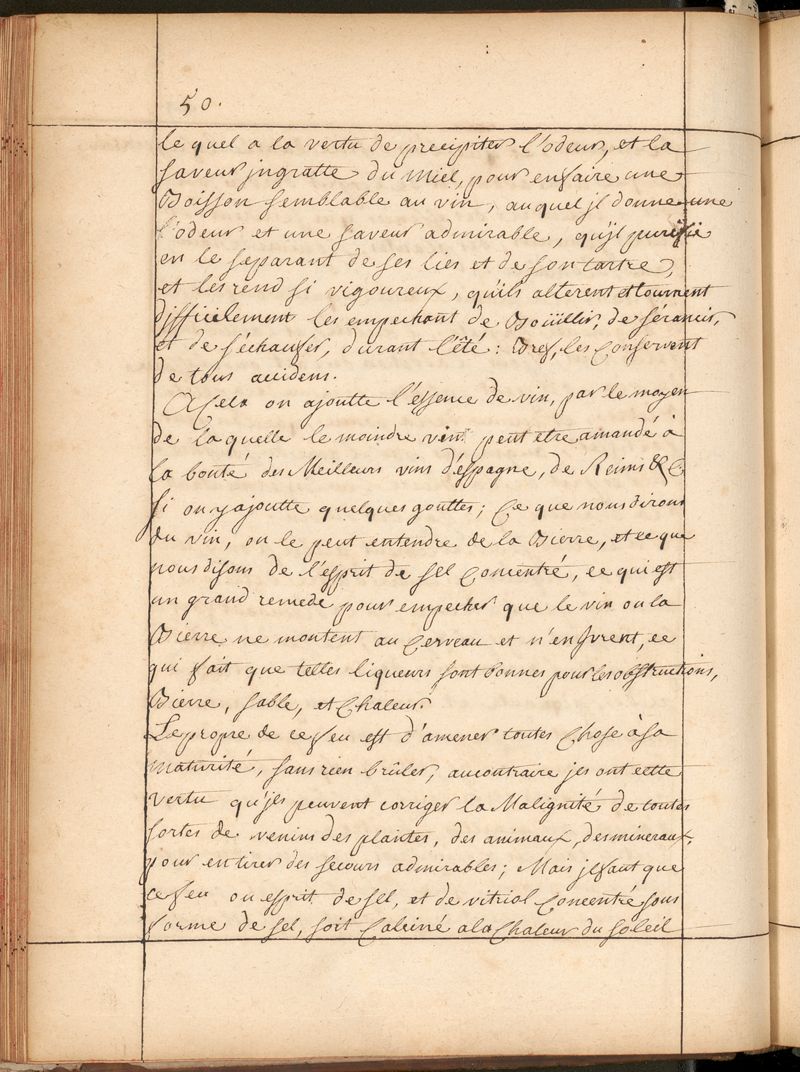 50.
le quel a la vertu de precipiter l'odeur, et la
saveur jngratte du miel, pour en faire une
Boisson semblable au vin, auquel jl donne une
l'odeur et une saveur admirable, qu'jl purifie
en le separant de ses lies et de son tartre,
et les rend si vigoureux, qu'ils alterent et tournent
difficilement les empechant de Boüillir, de s'érancir,
et de s'échaufer, durant l'êté: Bref, les Conservent
de tous accidens.
A Cela on ajoutte l'éssence de vin, par le moyen
de laquelle le moindre vin peut etre amandé à
la bonté des Meilleurs vins d'éspagne, de Reims &c
si on y ajoutte quelques gouttes; Ce que nous dirons
du vin, on le peut entendre de la Bierre, et ce que
nous disons de l'esprit de sel Concentré, ce qui est
un grand remede pour empecher que le vin ou la
Bierre ne montent au Cerveau et n'enjvrent, ce
qui fait que telles liqueurs sont bonnes pour les obstructions,
Pierre, sable, et Chaleur
Le propre de ce feu est d'amener toutes Chose à sa
maturité, sans rien brûler, au contraire jes ont cette
vertu qu'jls peuvent corriger la Malignité de toutes
sortes de venins des plantes, des animaux, des mineraux,
pour en tirer des secours admirables; Mais jl faut que
ce feu ou esprit de sel, et de vitriol Concentré sous
forme de sel, soit Calciné a la Chaleur du soleil